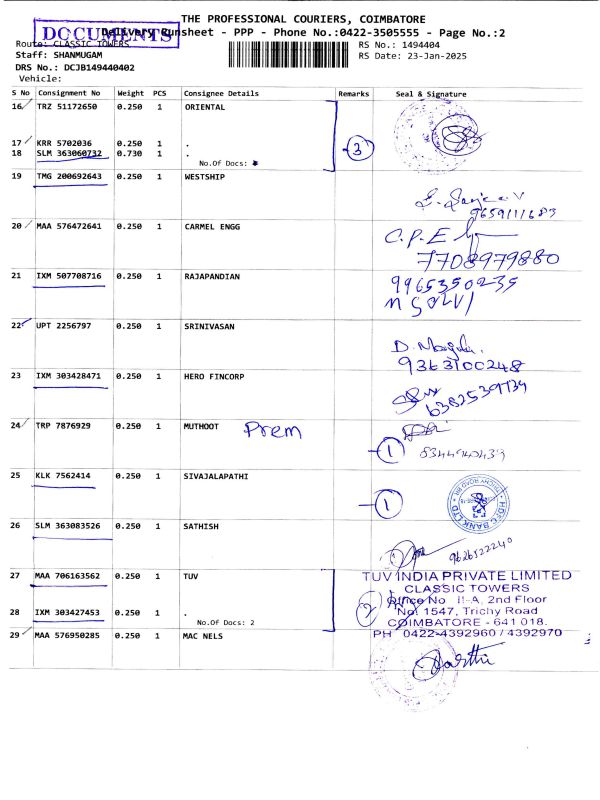 THE PROFESSIONAL COURIERS, COIMBATORE
DOCUMENTS
Delivery Runsheet - PPP - Phone No.:0422-3505555 - Page No.:2
Route: CLASSIC TOWERS
RS No.: 1494404
Staff: SHANMUGAM
RS Date: 23-Jan-2025
DRS No.: DCJB149440402
Vehicle:
S No Consignment No Weight PCS Consignee Details Remarks Seal & Signature
16 TRZ 51172650 0.250 1 ORIENTAL
17 KRR 5702036 0.250 1 .
18 SLM 363060732 0.730 1 . 3
No.Of Docs:
19 TMG 200692643 0.250 1 WESTSHIP
9659111683
20 MAA 576472641 0.250 1 CARMEL ENGG C.P.E
7708979880
21 IXM 507708716 0.250 1 RAJAPANDIAN 9965350235
22 UPT 2256797 0.250 1 SRINIVASAN
9363100248
23 IXM 303428471 0.250 1 HERO FINCORP
6382539734
24 TRP 7876929 0.250 1 MUTHOOT Prem
1 8344940439
25 KLK 7562414 0.250 1 SIVAJALAPATHI 1 HDFC BANK LTD
26 SLM 363083526 0.250 1 SATHISH
9626522240
27 MAA 706163562 0.250 1 TUV TUV INDIA PRIVATE LIMITED
CLASSIC TOWERS
Office No II-A, 2nd Floor
28 IXM 303427453 0.250 1 . 2 No. 1547, Trichy Road
No.Of Docs: 2 COIMBATORE - 641 018.
29 MAA 576950285 0.250 1 MAC NELS PH 0422-4392960 / 4392970